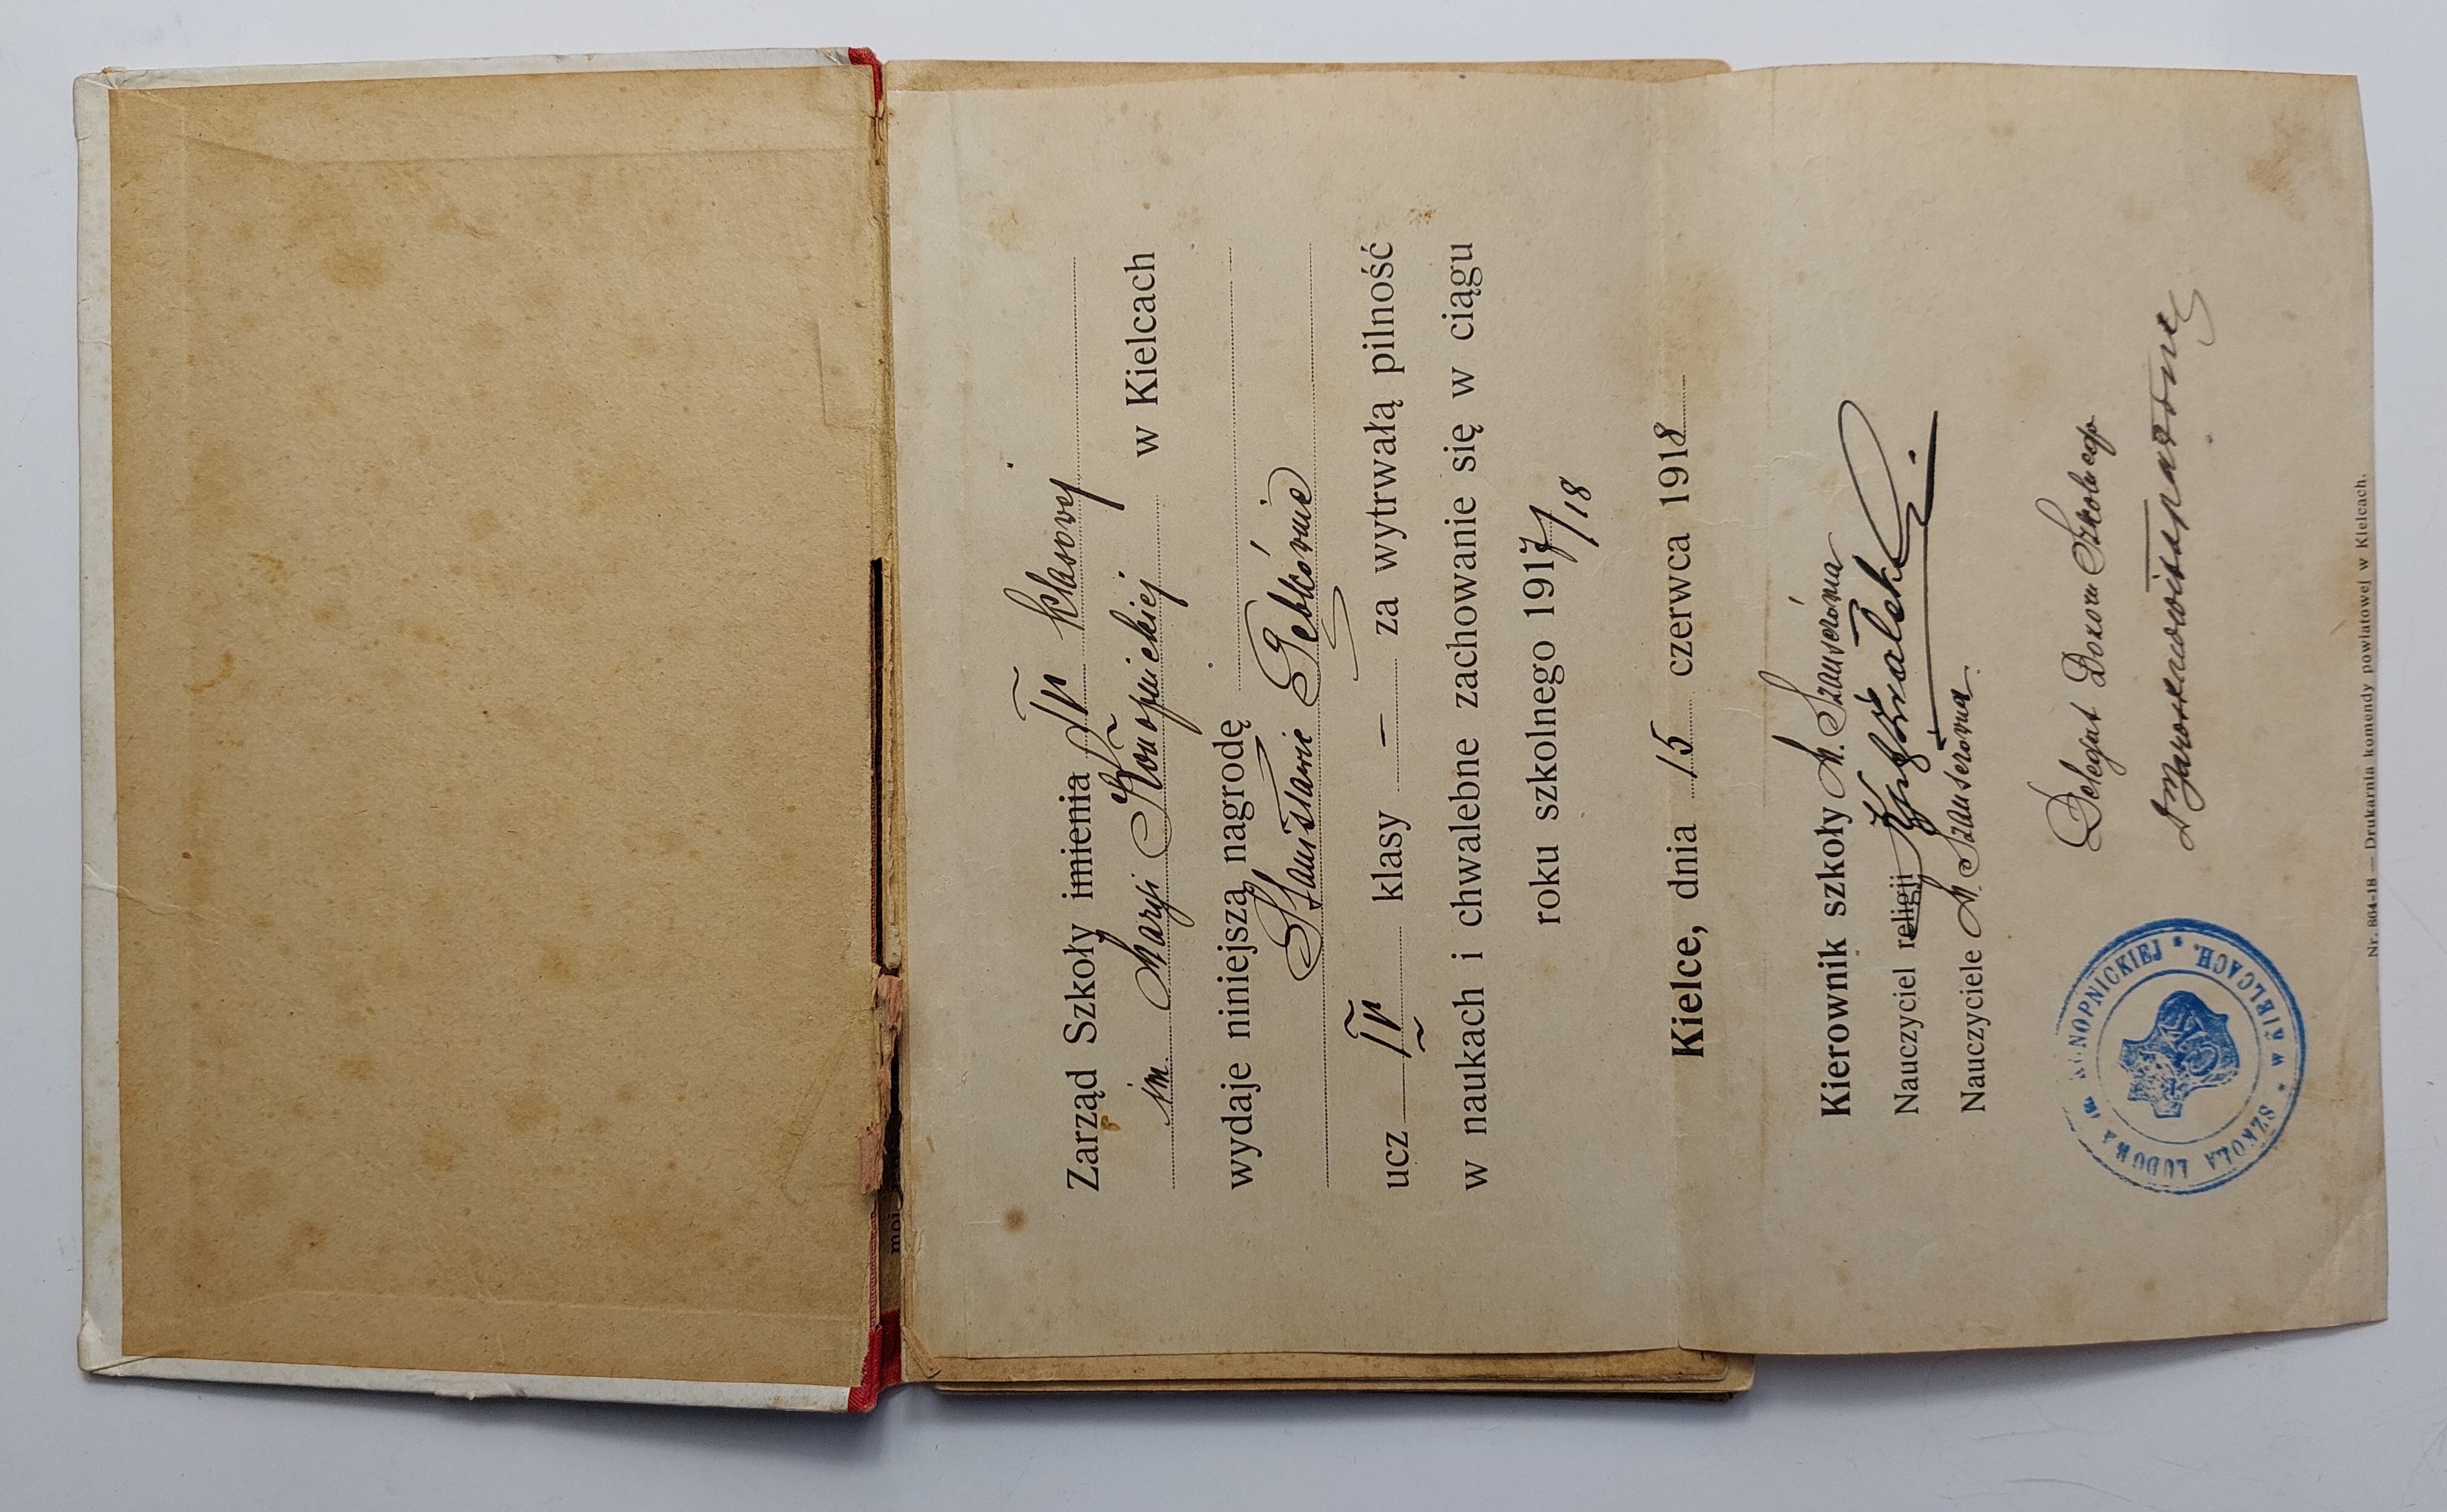 Zarząd Szkoły imienia IV klasowej
im. Maryi Konopnickiej w Kielcach
wydaje niniejszą nagrodę
Stanisławie Gębkównie
ucz IV klasy — za wytrwałą pilność
w naukach i chwalebne zachowanie się w ciągu
roku szkolnego 1917/18
Kielce, dnia 15 czerwca 1918
Kierownik szkoły
Nauczyciel religji
Nauczyciele
Delegat Dozoru Szkolnego
SZKOŁA LUDOWA IM KONOPNICKIEJ * W KIELCACH. *
Nr. 864-18 — Drukarnia komendy powiatowej w Kielcach.
moj